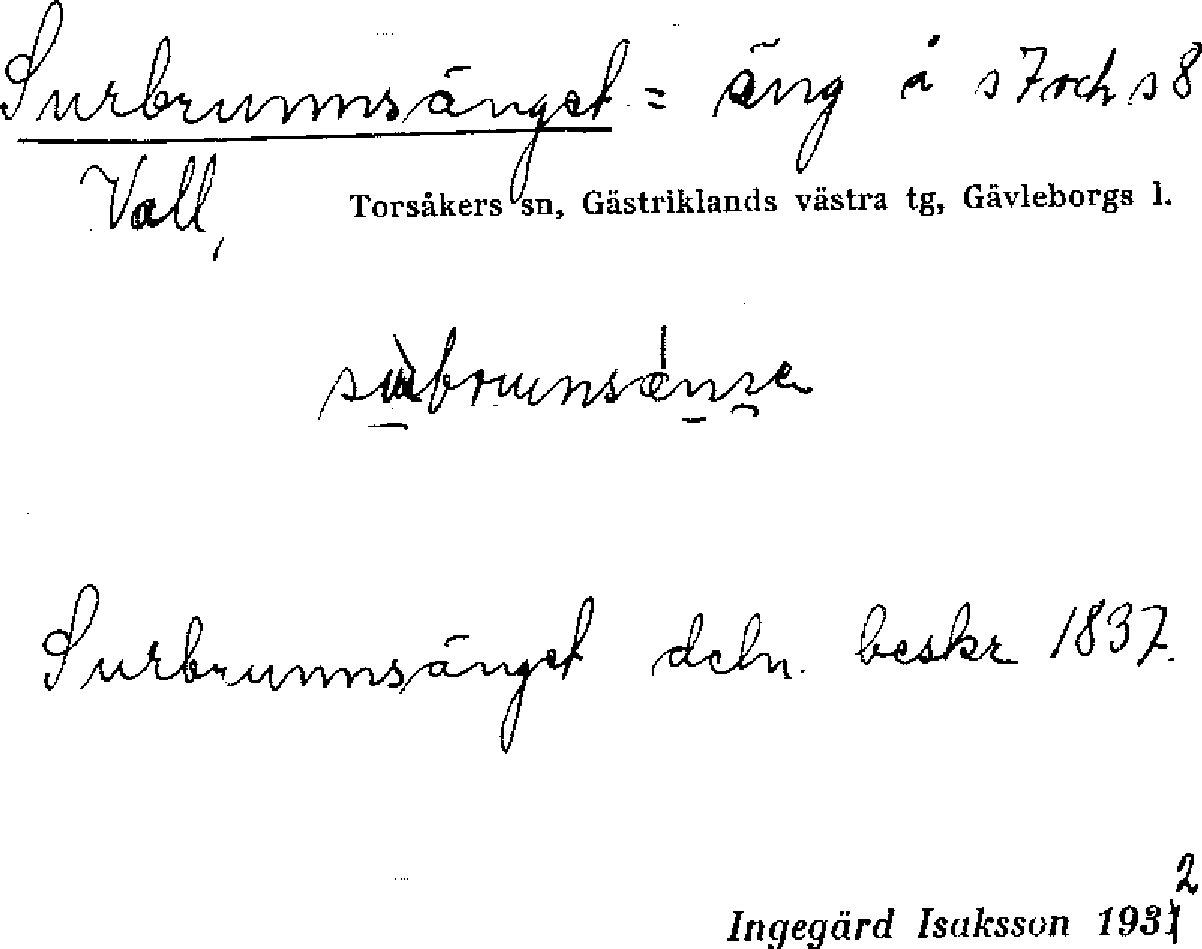 Surbrunnsänget = äng å s7 och s8
Vall, Torsåkers sn, Gästriklands västra tg, Gävleborgs l.
Surbrunnsänget deln. beskr 1837.
2
Ingegärd Isaksson 1931